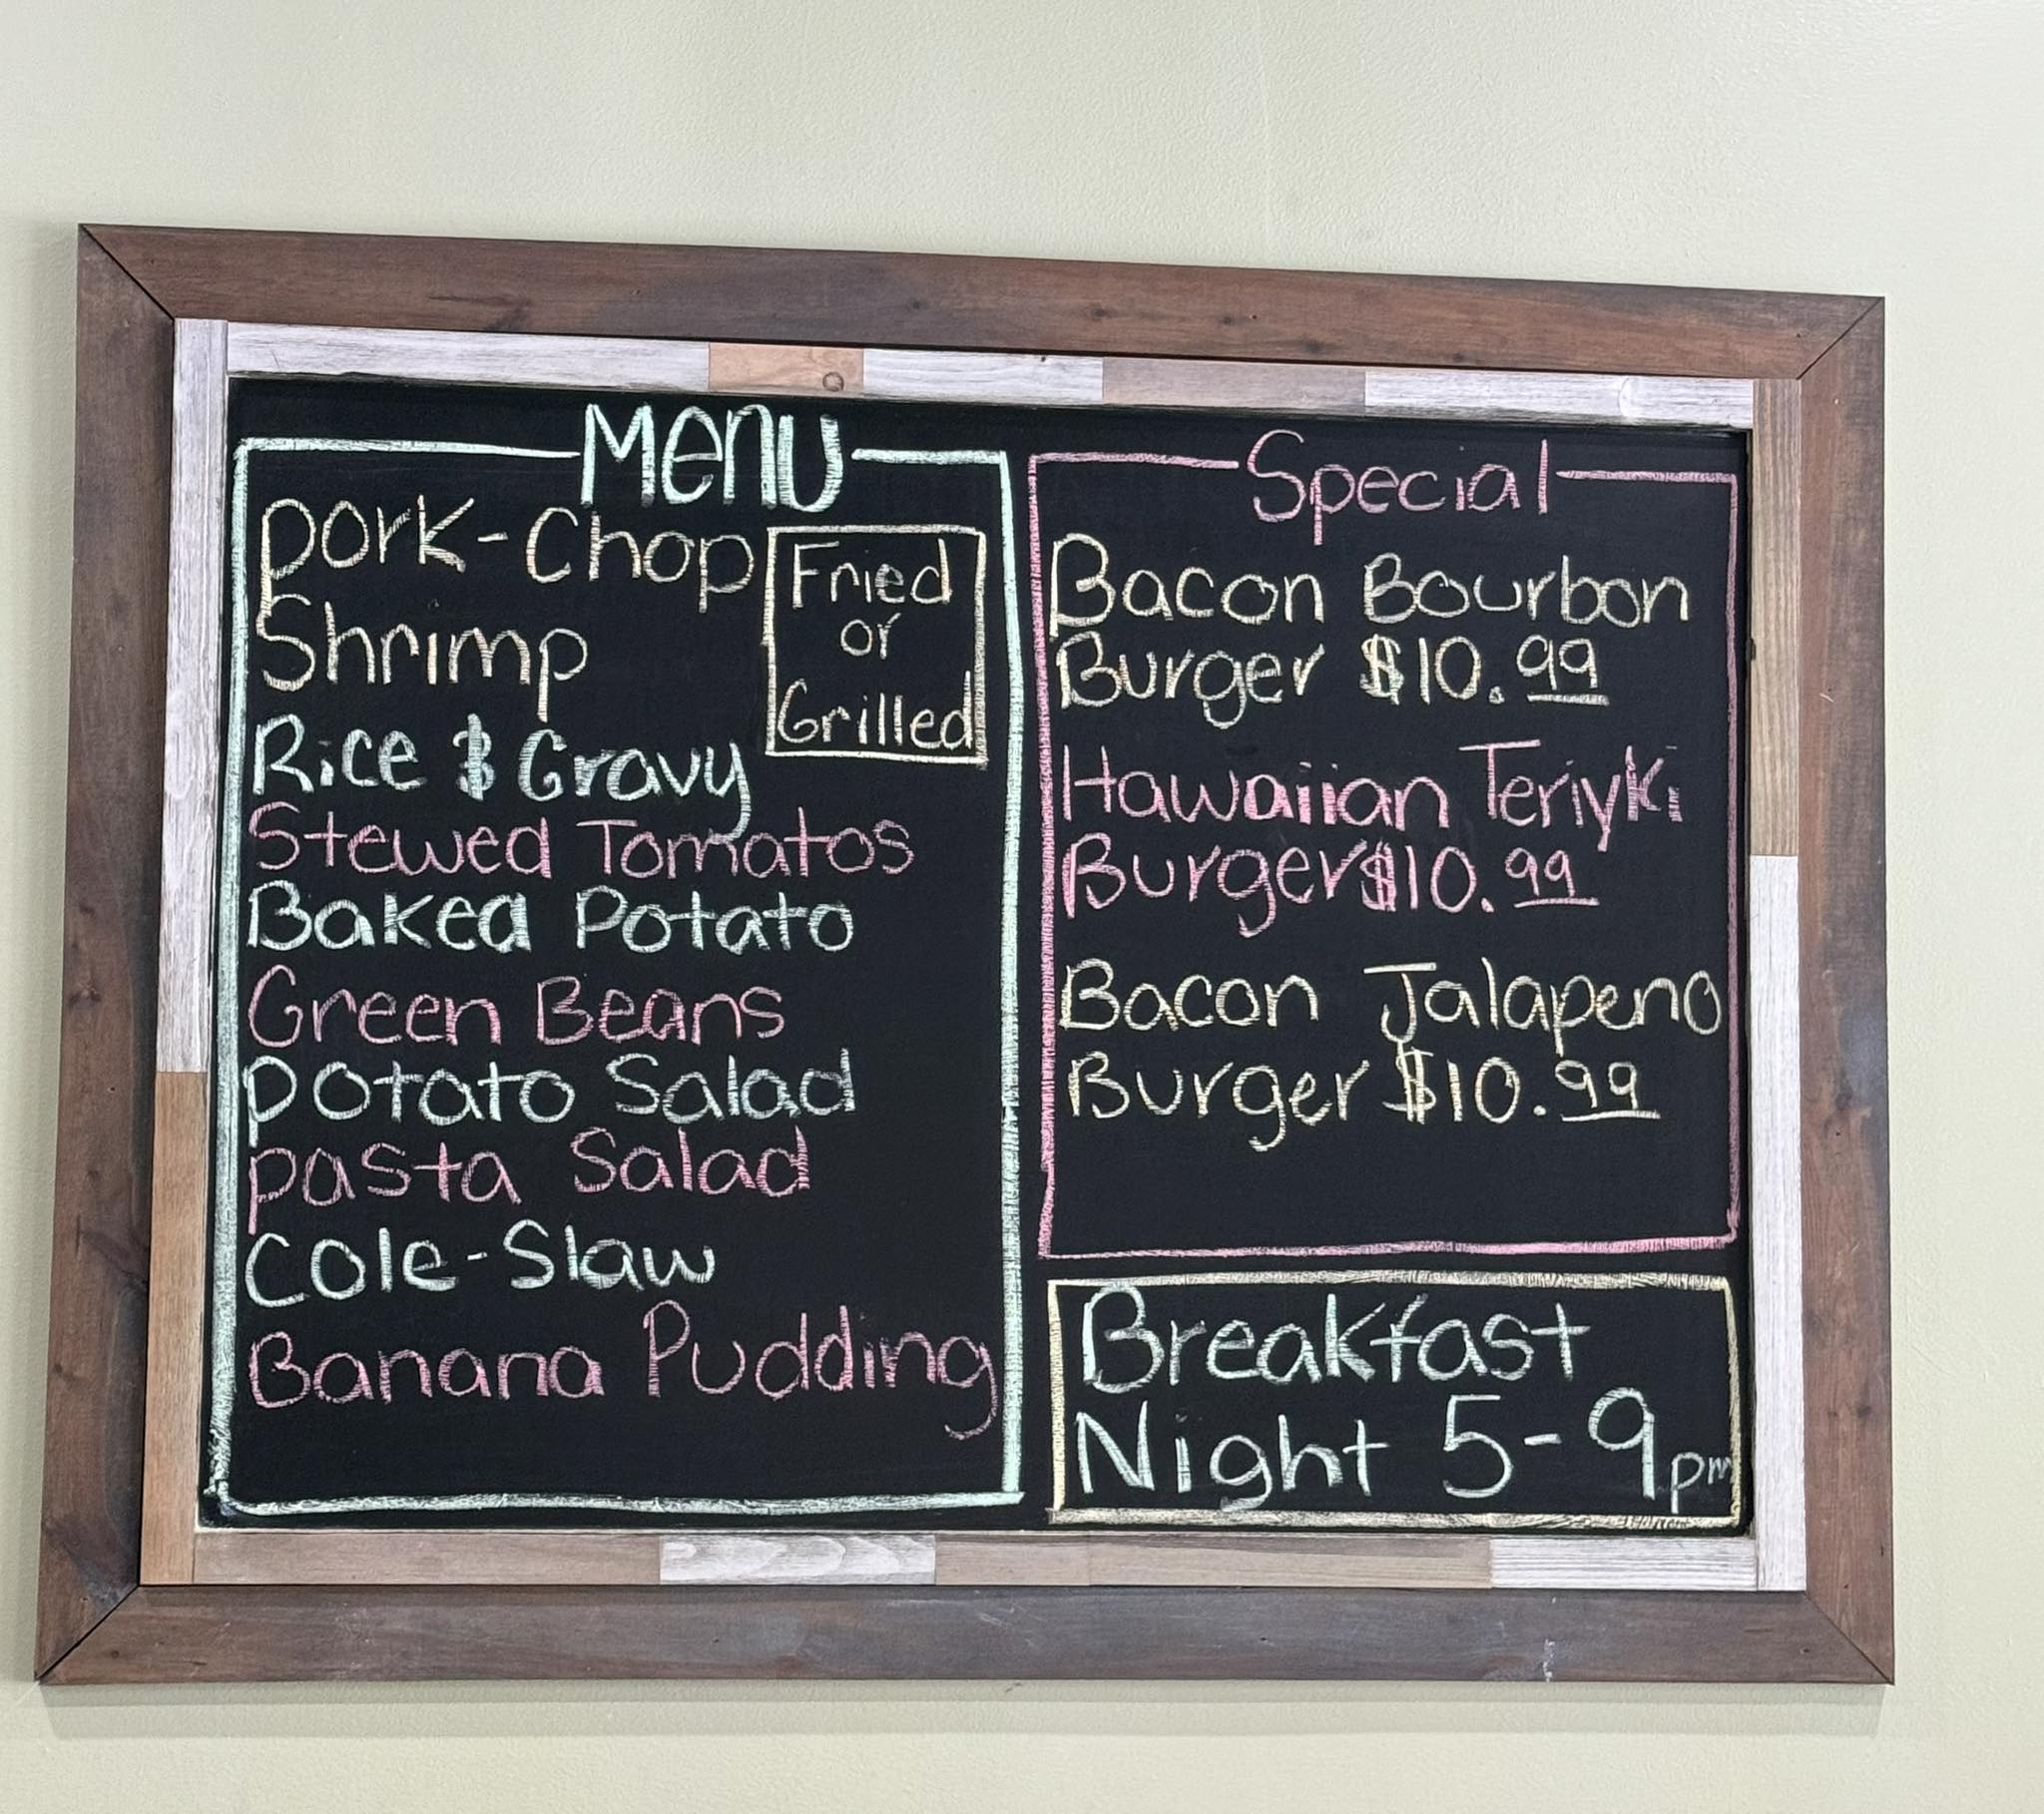 Menu
Pork-Chop
Shrimp
Fried
or
Grilled
Rice & Gravy
Stewed Tomatos
Baked Potato
Green Beans
Potato Salad
Pasta Salad
Cole-Slaw
Banana Pudding
Special
Bacon Bourbon
Burger $10.99
Hawaiian Teriyki
Burger $10.99
Bacon Jalapeno
Burger $10.99
Breakfast
Night 5-9pm